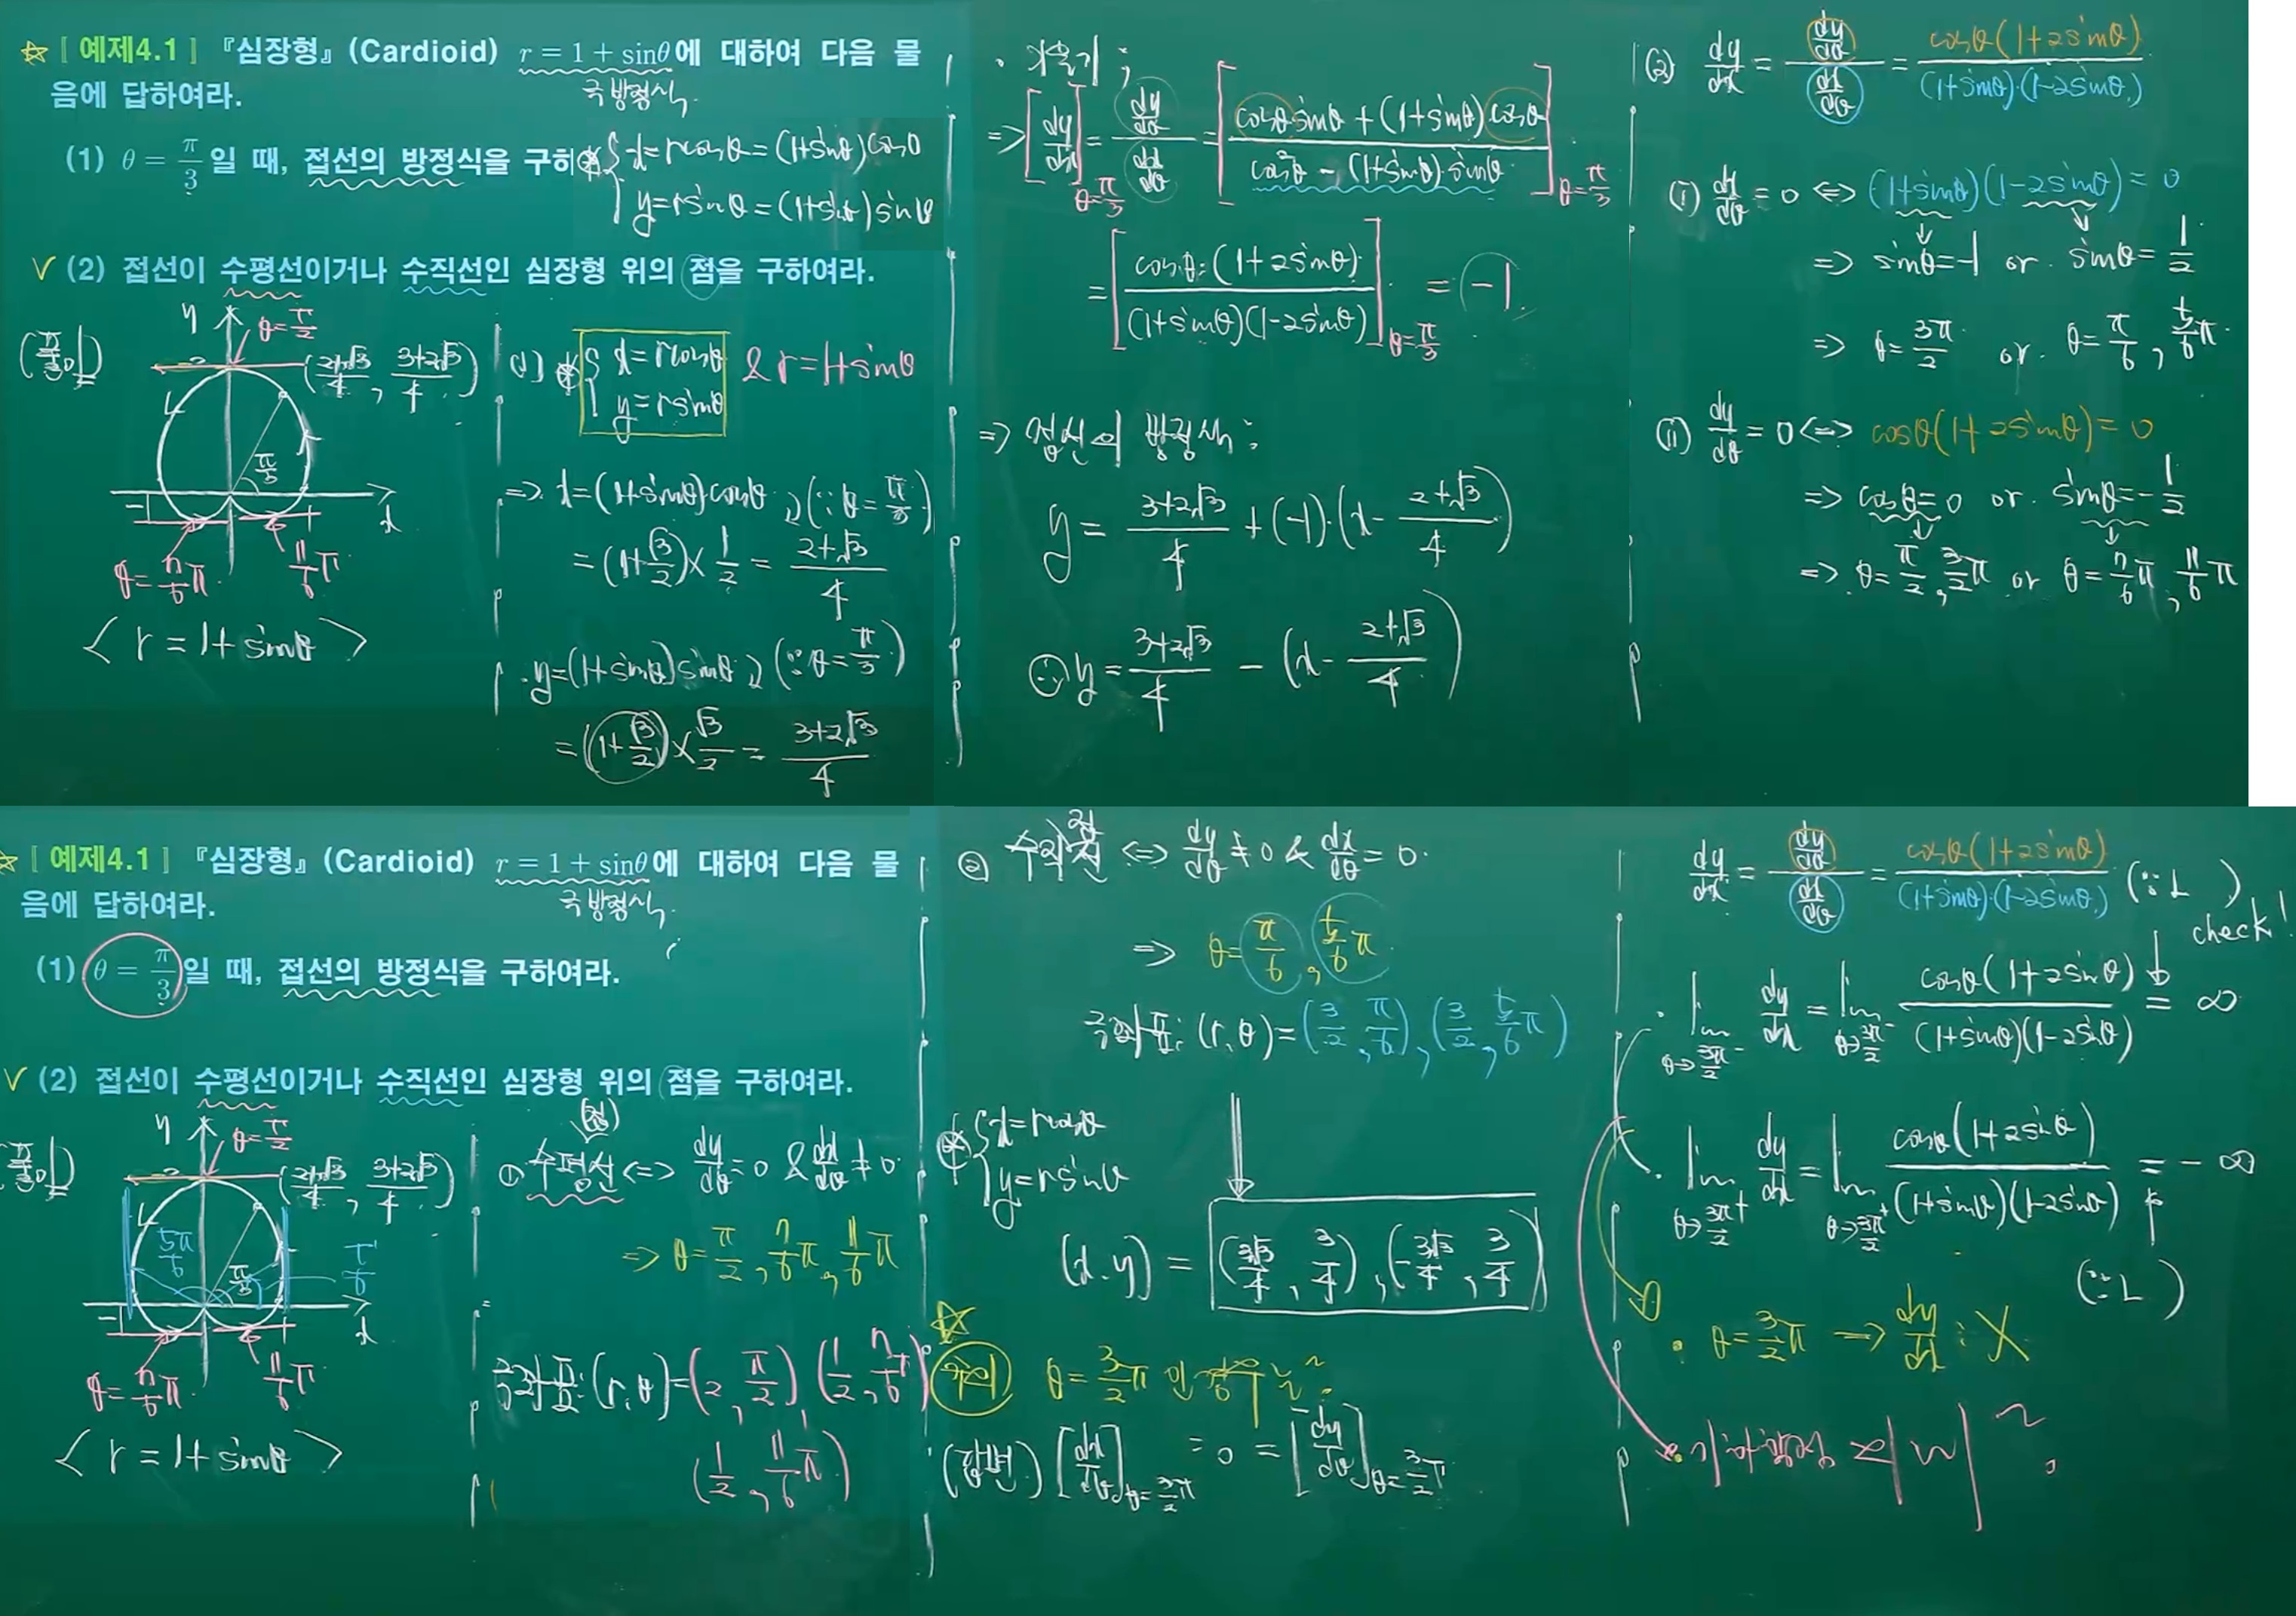 ☆ [ 예제4.1 ] 『심장형』(Cardioid) r = 1 + sinθ에 대하여 다음 물
음에 답하여라.
극방정식
(1) θ = π/3 일 때, 접선의 방정식을 구하
{ x = rcosθ = (1+sinθ)cosθ
y = rsinθ = (1+sinθ)sinθ
✓ (2) 접선이 수평선이거나 수직선인 심장형 위의 점을 구하여라.
y
θ = π/2
((2+√3)/4, (3+2√3)/4)
π/3
x
θ = 7/6 π
11/6 π
< r = 1+sinθ >
(1) { x = rcosθ
y = rsinθ
& r = 1+sinθ
⇒ x = (1+sinθ)·cosθ (∵ θ = π/3)
= (1+√3/2) × 1/2 = (2+√3)/4
· y = (1+sinθ)sinθ (∵ θ = π/3)
= (1+√3/2) × √3/2 = (3+2√3)/4
· 기울기 ;
⇒ [dy/dx]θ=π/3 = (dy/dθ)/(dx/dθ) = [(cosθsinθ + (1+sinθ)cosθ)/(cos²θ - (1+sinθ)·sinθ)]θ=π/3
= [cosθ·(1+2sinθ)/((1+sinθ)(1-2sinθ))]θ=π/3 = -1
⇒ 접선의 방정식 :
y = (3+2√3)/4 + (-1)·(x - (2+√3)/4)
∴ y = (3+2√3)/4 - (x - (2+√3)/4)
(2) dy/dx = (dy/dθ)/(dx/dθ) = cosθ(1+2sinθ)/((1+sinθ)·(1-2sinθ))
(i) dx/dθ = 0 ⇔ (1+sinθ)(1-2sinθ) = 0
⇒ sinθ = -1 or sinθ = 1/2
⇒ θ = 3π/2 or θ = π/6, 5/6 π
(ii) dy/dθ = 0 ⇔ cosθ(1+2sinθ) = 0
⇒ cosθ = 0 or sinθ = -1/2
⇒ θ = π/2, 3/2 π or θ = 7/6 π, 11/6 π
☆ [ 예제4.1 ] 『심장형』(Cardioid) r = 1 + sinθ에 대하여 다음 물
음에 답하여라.
극방정식
(1) θ = π/3 일 때, 접선의 방정식을 구하여라.
✓ (2) 접선이 수평선이거나 수직선인 심장형 위의 점을 구하여라.
y
θ = π/2
((2+√3)/4, (3+2√3)/4)
5π/6
π/3
π/6
x
θ = 7/6 π
11/6 π
< r = 1+sinθ >
(접)
① 수평선 ⇔ dy/dθ = 0 & dx/dθ ≠ 0
⇒ θ = π/2, 7/6 π, 11/6 π
극좌표: (r, θ) = (2, π/2), (1/2, 7/6 π),
(1/2, 11/6 π)
접
② 수직선 ⇔ dy/dθ ≠ 0 & dx/dθ = 0
⇒ θ = π/6, 5/6 π
극좌표: (r, θ) = (3/2, π/6), (3/2, 5/6 π)
{ x = rcosθ
y = rsinθ
(x, y) = (3√3/4, 3/4), (-3√3/4, 3/4)
☆
주의 θ = 3/2 π 인 경우는?
(답변) [dx/dθ]θ=3/2π = 0 = [dy/dθ]θ=3/2π
dy/dx = (dy/dθ)/(dx/dθ) = cosθ(1+2sinθ)/((1+sinθ)·(1-2sinθ)) (∵ L )
check!
· lim θ→3π/2⁻ dy/dx = lim θ→3π/2⁻ cosθ(1+2sinθ)/((1+sinθ)(1-2sinθ)) = ∞
· lim θ→3π/2⁺ dy/dx = lim θ→3π/2⁺ cosθ(1+2sinθ)/((1+sinθ)(1-2sinθ)) = -∞
(∵ L )
· θ = 3/2 π → dy/dx : X